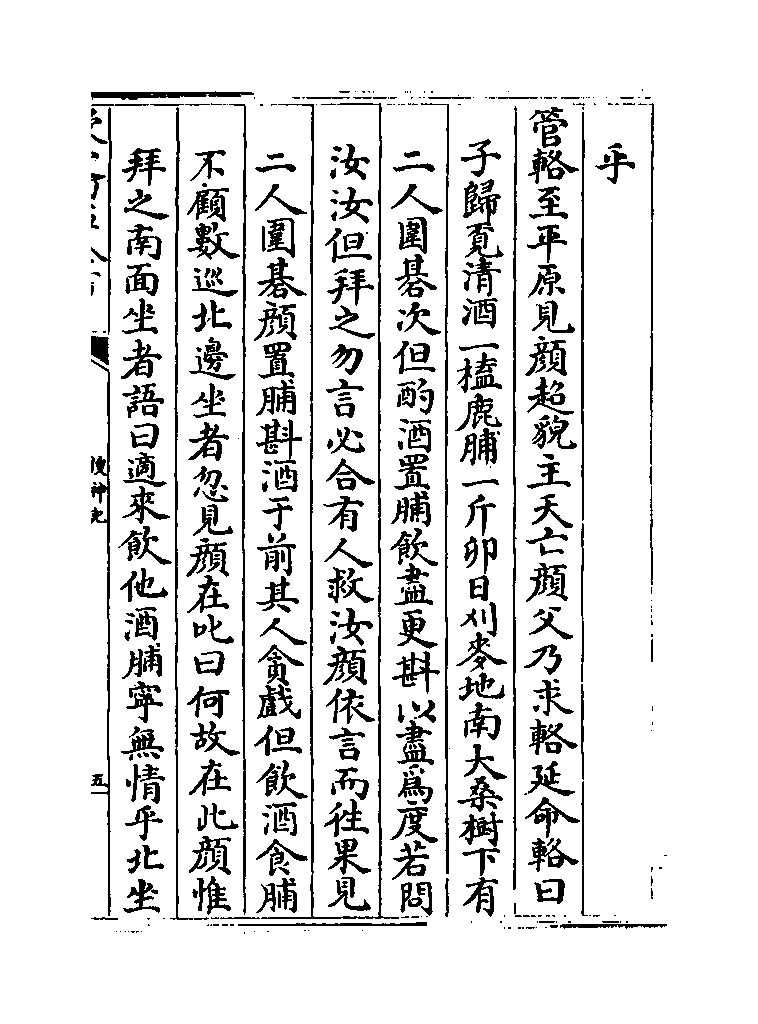 乎
管輅至平原見顔超貌主夭亡顔父乃求輅延命輅曰
子歸覔清酒一榼鹿脯一斤卯日刈麥地南大桑樹下有
二人圍碁次但酌酒置脯飲盡更斟以盡爲度若問
汝汝但拜之勿言必合有人救汝顔依言而徃果見
二人圍碁顔置脯斟酒于前其人貪戲但飲酒食脯
不顧數巡北邊坐者忽見顔在叱曰何故在此顔惟
拜之南面坐者語曰適來飲他酒脯寧無情乎北坐
搜神記
五